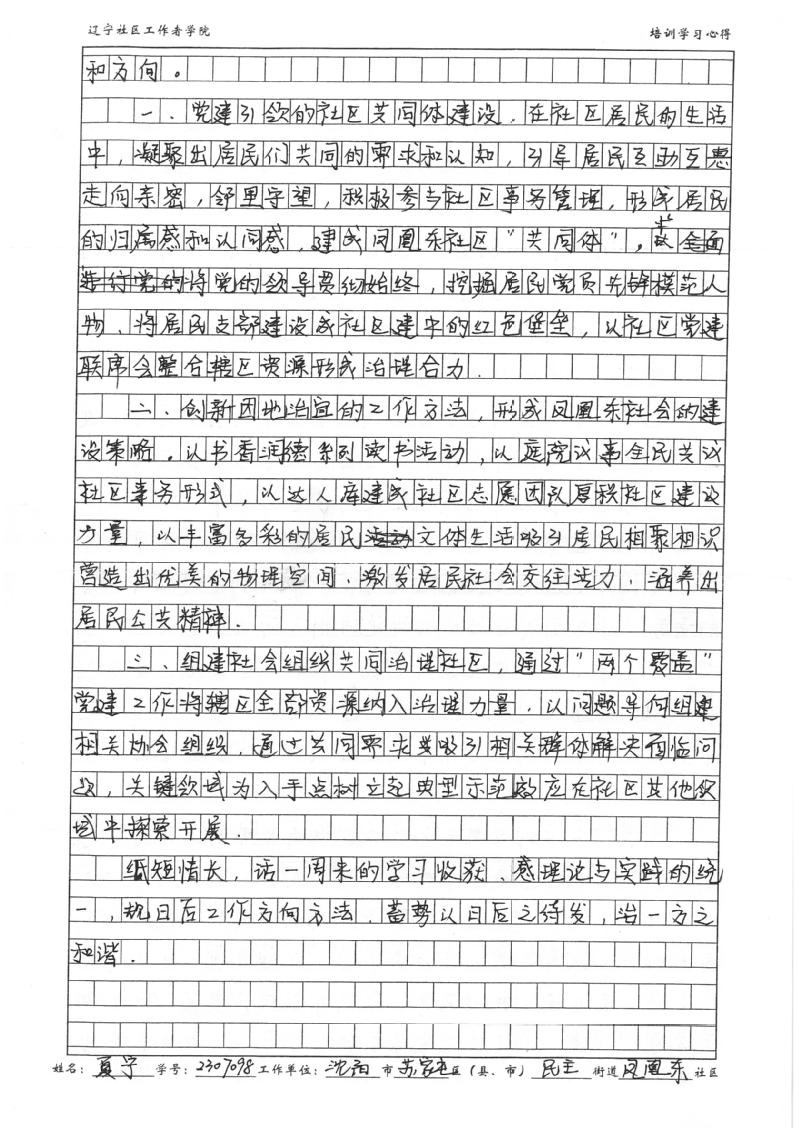 辽宁社区工作者学院 培训学习心得
和方向。
一、党建引领的社区共同体建设，在社区居民的生活
中，凝聚出居民们共同的需求和认知，引导居民互助互惠
走向亲密，邻里守望，积极参与社区事务管理，形成居民
的归属感和认同感，建成凤凰东社区“共同体”。全面
将党的领导贯彻始终，挖掘居民党员先锋模范人
物、将居民支部建设成社区建中的红色堡垒，以社区党建
联席会整合辖区资源形成治理合力.
二、创新因地治宜的工作方法，形成凤凰东社会的建
设策略。以书香润德系列读书活动，以庭院议事全民共议
社区事务形式，以达人库建成社区志愿团队厚积社区建设
力量，以丰富多彩的居民文体生活吸引居民相聚相识
营造出优美的物理空间、激发居民社会交往活力、涵养出
居民公共精神.
三、组建社会组织共同治理社区，通过“两个覆盖”
党建工作将辖区全部资源纳入治理力量，以问题导向组建
相关协会组织，通过共同需求吸引相关群体解决面临问
题，关键领域为入手点树立起典型示范效应在社区其他领
域中探索开展.
纸短情长，话一周来的学习收获、感理论与实践的统
一，执日后工作方向方法，蓄势以日后之待发，治一方之
和谐.
姓名：夏宁 学号：2307098 工作单位：沈阳市苏家屯区（县、市）民主街道凤凰东社区